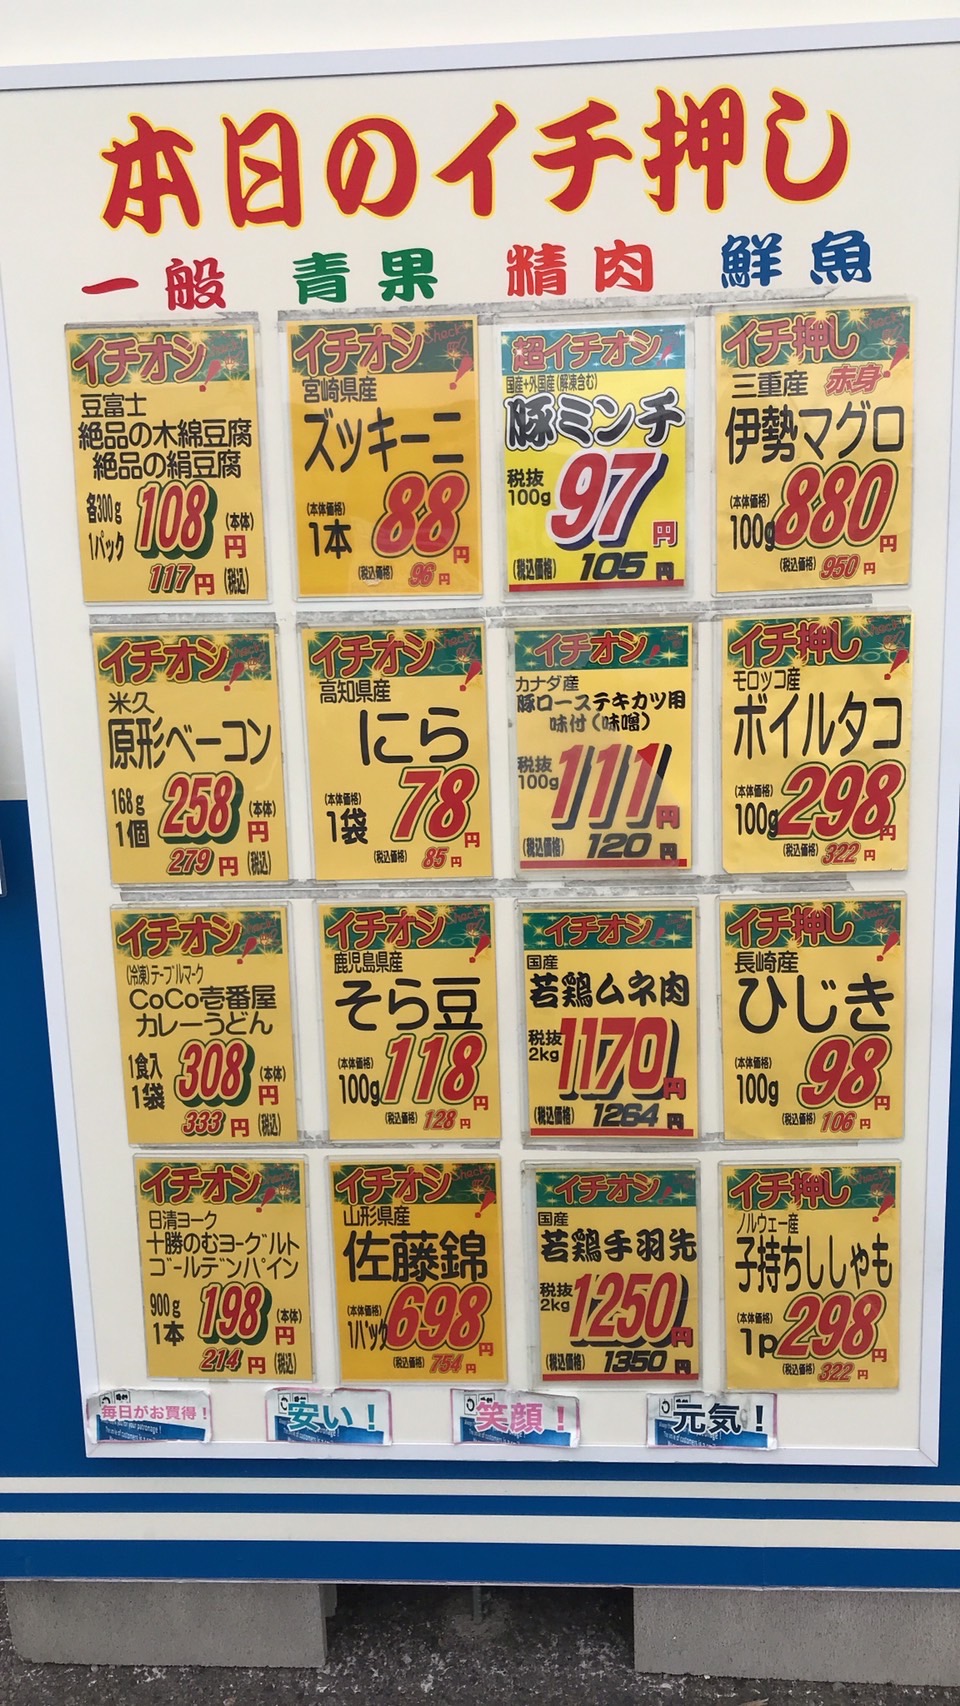 本日のイチ押し
一般 青果 精肉 鮮魚
イチオシ!
豆富士
絶品の木綿豆腐
絶品の絹豆腐
各300g
1パック
108円(本体)
117円(税込)
イチオシ!
宮崎県産
ズッキーニ
(本体価格)
1本 88円
(税込価格) 96円
超イチオシ!
国産+外国産(解凍含む)
豚ミンチ
税抜
100g 97円
(税込価格) 105円
イチ押し!
三重産 赤身
伊勢マグロ
(本体価格)
100g 880円
(税込価格) 950円
イチオシ!
米久
原形ベーコン
168g
1個
258円(本体)
279円(税込)
イチオシ!
高知県産
にら
(本体価格)
1袋 78円
(税込価格) 85円
イチオシ!
カナダ産
豚ローステキカツ用
味付(味噌)
税抜
100g 111円
(税込価格) 120円
イチ押し!
モロッコ産
ボイルタコ
(本体価格)
100g 298円
(税込価格) 322円
イチオシ!
(冷凍)テーブルマーク
CoCo壱番屋
カレーうどん
1食入
1袋
308円(本体)
333円(税込)
イチオシ!
鹿児島県産
そら豆
(本体価格)
100g 118円
(税込価格) 128円
イチオシ!
国産
若鶏ムネ肉
税抜
2kg 1170円
(税込価格) 1264円
イチ押し!
長崎産
ひじき
(本体価格)
100g 98円
(税込価格) 106円
イチオシ!
日清ヨーク
十勝のむヨーグルト
ゴールデンパイン
900g
1本
198円(本体)
214円(税込)
イチオシ!
山形県産
佐藤錦
(本体価格)
1パック 698円
(税込価格) 754円
イチオシ!
国産
若鶏手羽先
税抜
2kg 1250円
(税込価格) 1350円
イチ押し!
ノルウェー産
子持ちししゃも
(本体価格)
1p 298円
(税込価格) 322円
毎日がお買得!
安い!
笑顔!
元気!